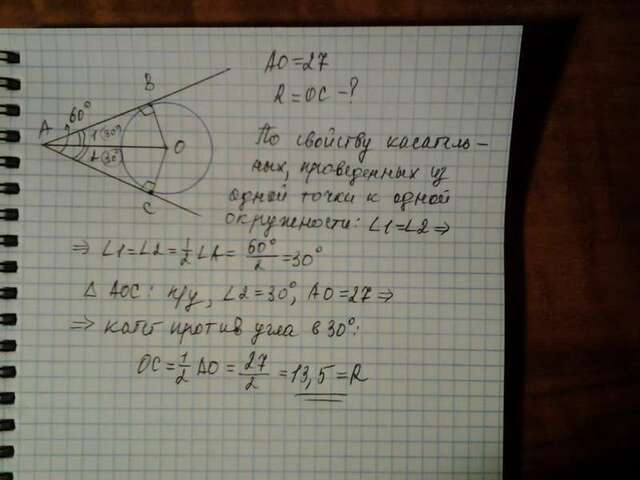 AO=27
R=OC-?
B
60°
A
1(30°)
2(30°)
O
C
По свойству касатель-
ных, проведенных из
одной точки к одной
окружности: ∠1=∠2 ⇒
⇒ ∠1=∠2=1/2∠A= 60°/2 =30°
△ AOC: п/у, ∠2=30°, AO=27 ⇒
⇒ катет против угла в 30°:
OC=1/2 AO = 27/2 = 13,5 = R